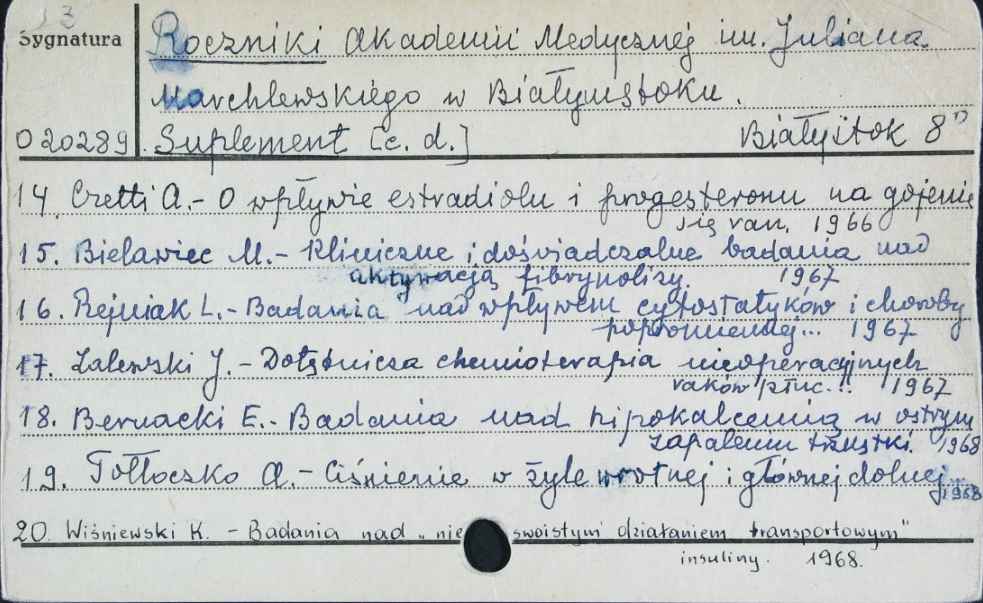 3
Sygnatura
Roczniki Akademii Medycznej im. Juliana
Marchlewskiego w Białymstoku.
O 20289 Suplement [c. d.] Białystok 8°
14. Czetti A.- O wpływie estradiolu i progesteronu na gojenie
się ran. 1966
15. Bielawiec M.- Kliniczne i doświadczalne badania nad
aktywacją fibrynolizy. 1967
16. Rejniak L.- Badania nad wpływem cytostatyków i choroby
popromiennej... 1967
17. Zalewski J.- Dotętnicza chemioterapia nieoperacyjnych
raków płuc... 1967
18. Bernacki E.- Badania nad hipokalcemią w ostrym
zapaleniu trzustki. 1968
19. Tołłoczko A.- Ciśnienie w żyle wrotnej i głównej dolnej...
1968
20. Wiśniewski K. - Badania nad „nieswoistym działaniem transportowym"
insuliny. 1968.